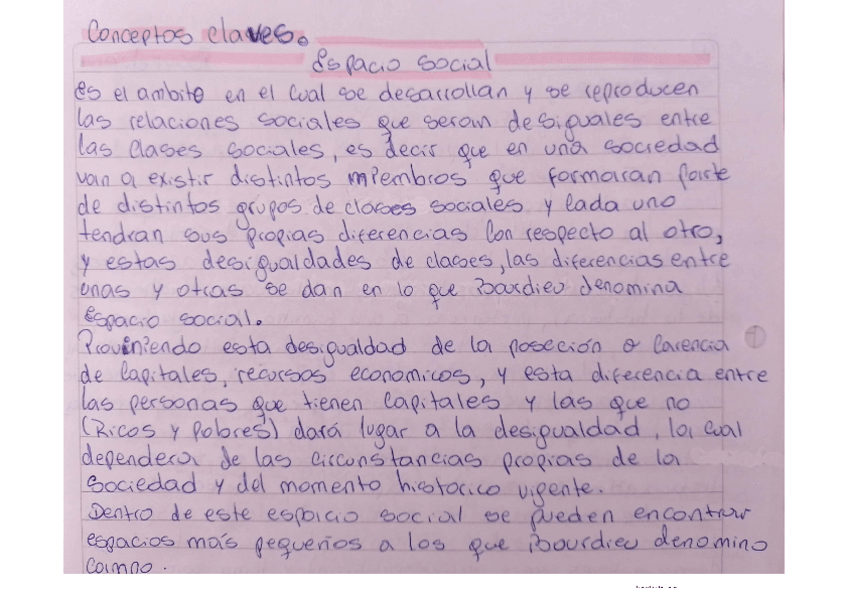 Conceptos claves.
Espacio social
es el ambito en el cual se desarrollan y se reproducen
las relaciones sociales que seran desiguales entre
las clases sociales, es decir que en una sociedad
van a existir distintos miembros que formaran parte
de distintos grupos de clases sociales y cada uno
tendran sus propias diferencias con respecto al otro,
y estas desigualdades de clases, las diferencias entre
unas y otras se dan en lo que Bourdieu denomina
espacio social.
Proviniendo esta desigualdad de la poseción o carencia
de capitales, recursos economicos, y esta diferencia entre
las personas que tienen capitales y las que no
(Ricos y pobres) dará lugar a la desigualdad, la cual
dependera de las circunstancias propias de la
sociedad y del momento historico vigente.
Dentro de este espacio social se pueden encontrar
espacios más pequeños a los que Bourdieu denomino
campo.